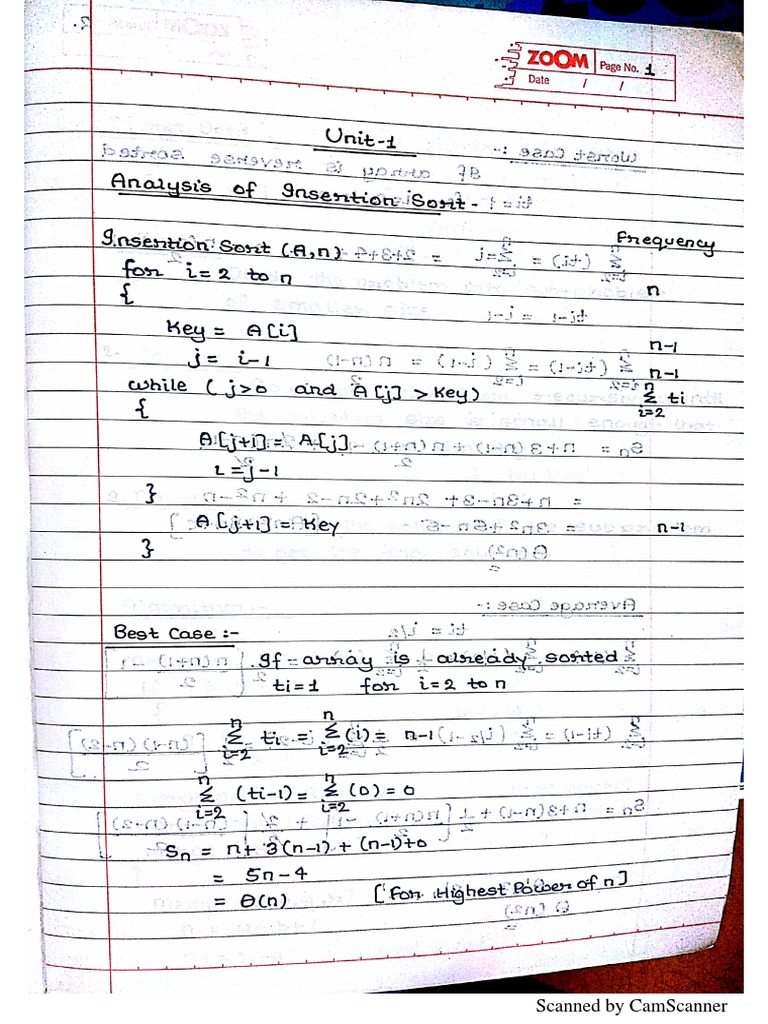 ZOOM
Page No. 1
Date / /
Unit-1
Analysis of Insertion Sort-
Insertion Sort (A,n) Frequency
for i=2 to n n
{
Key = A[i] n-1
j= i-1 n-1
while (j>0 and A[j] >Key) n∑i=2 ti
{
A[j+1]= A[j]
i=j-1
}
A[j+1]=Key n-1
}
Best Case :-
If array is already sorted
ti=1 for i=2 to n
n∑i=2 ti = n∑i=2 (i) = n-1
n∑i=2 (ti-1) = n∑i=2 (0) = 0
Sn = n+ 3(n-1) + (n-1)+0
= 5n-4
= θ(n) [For Highest Power of n]
Scanned by CamScanner